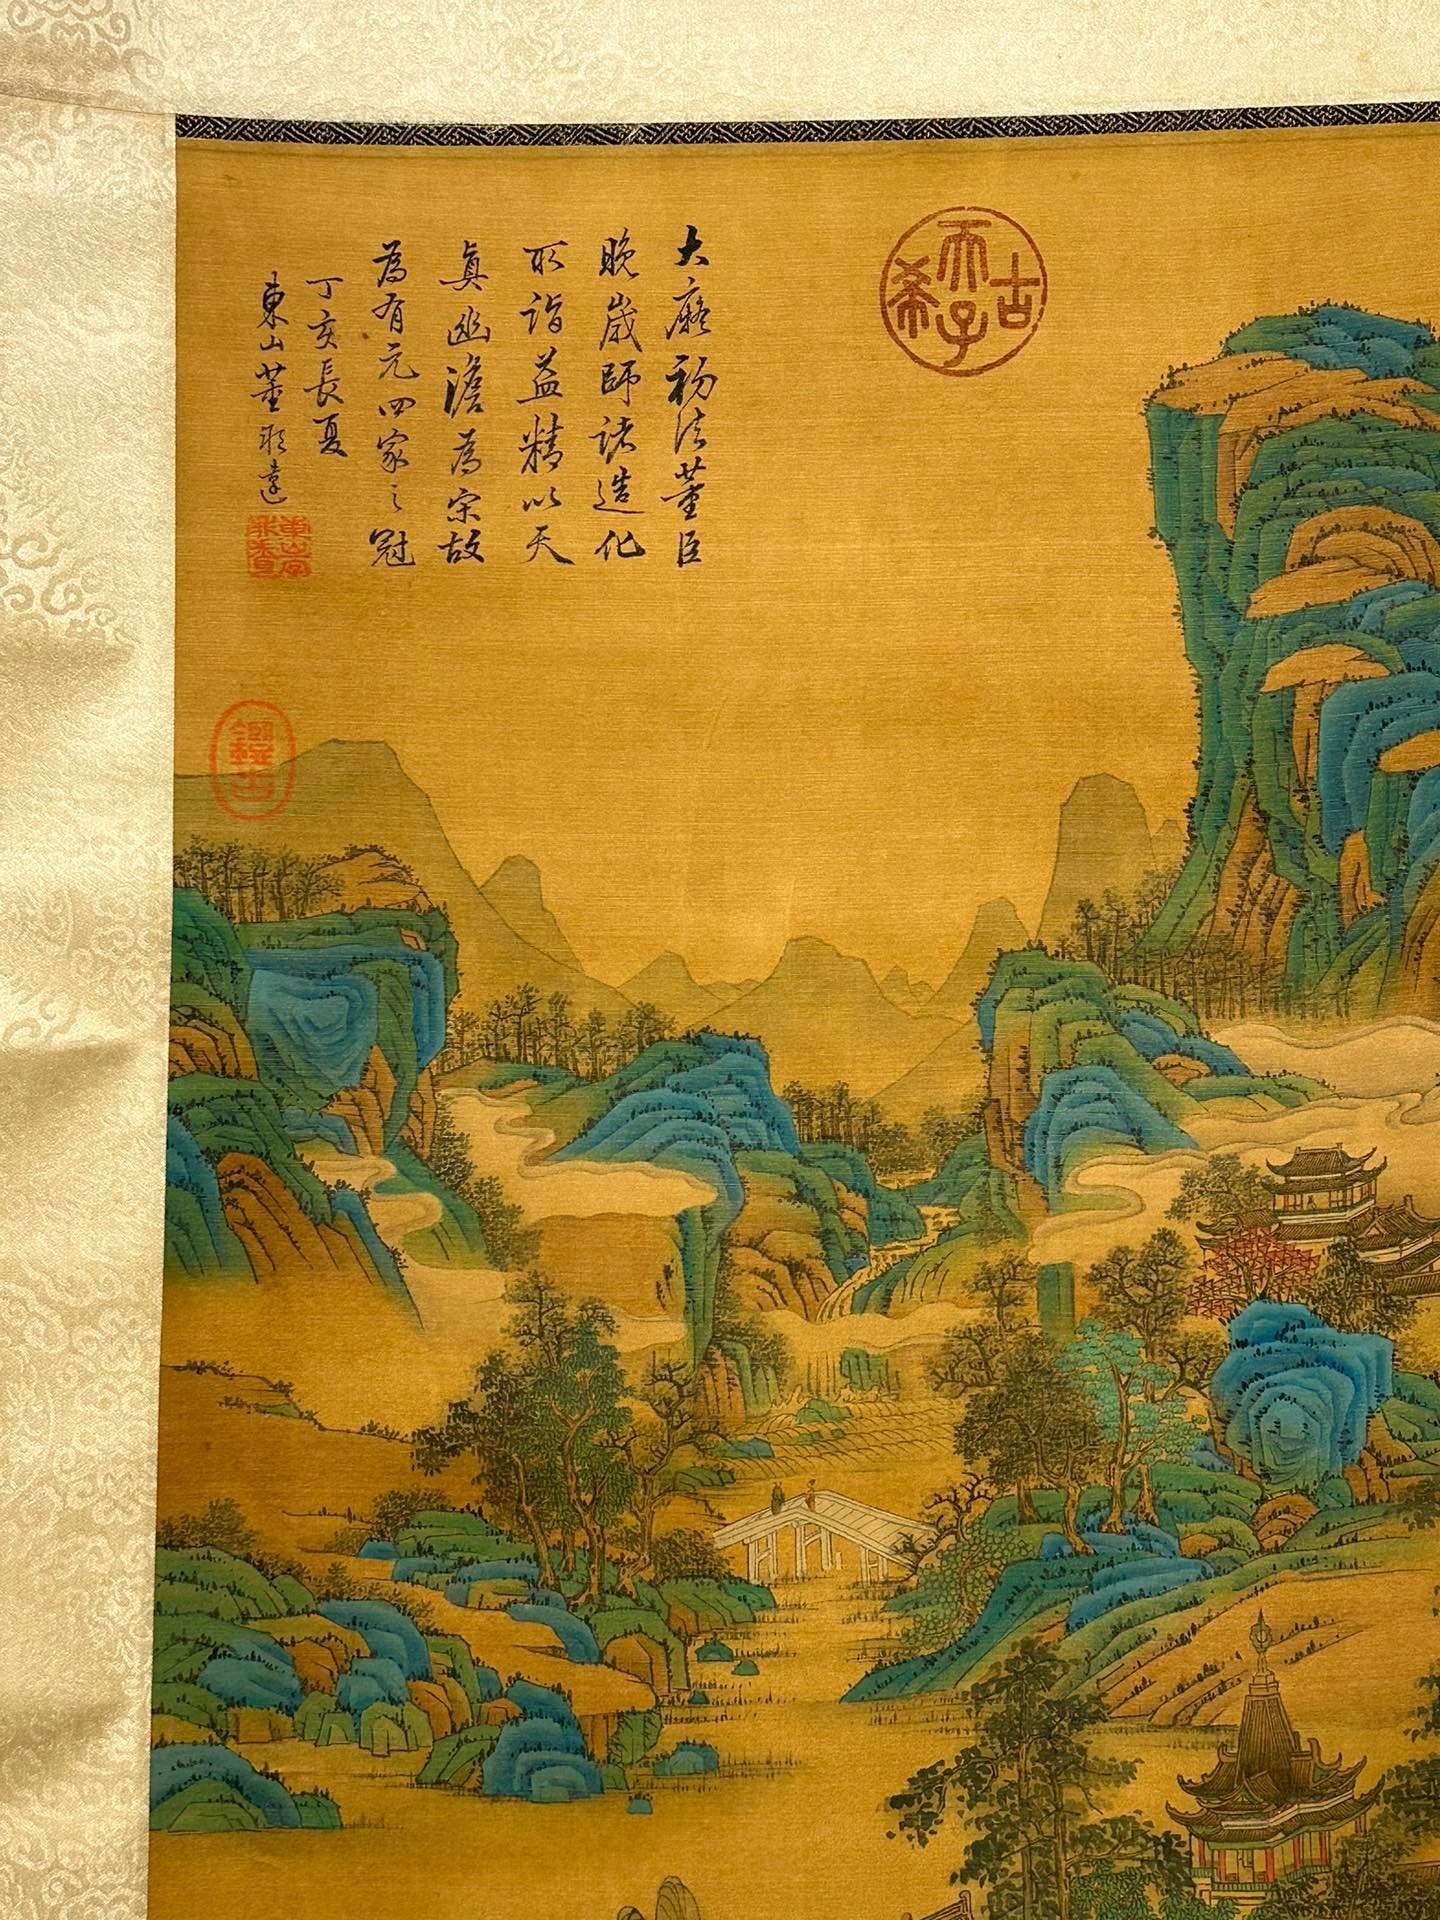 大癡初法董臣
晚歲師諸造化
所詣益精以天
真幽澹為宗故
為有元四家之冠
丁亥長夏
東山董邦達
古希天子